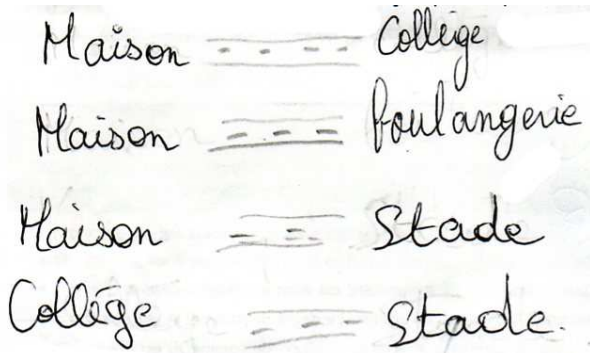 Maison Collège
Maison boulangerie
Maison Stade
Collège Stade.